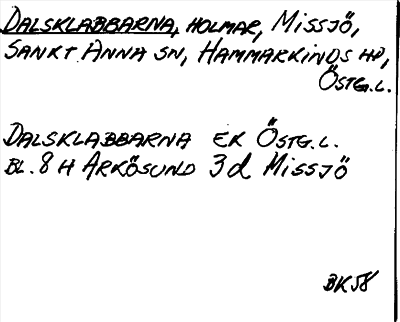 DALSKLABBARNA, HOLMAR, MISSJÖ,
SANKT ANNA SN, HAMMARKINDS HD,
ÖSTG.L.
DALSKLABBARNA EK ÖSTG.L.
BL. 8 H ARKÖSUND 3d MISSJÖ
BK58